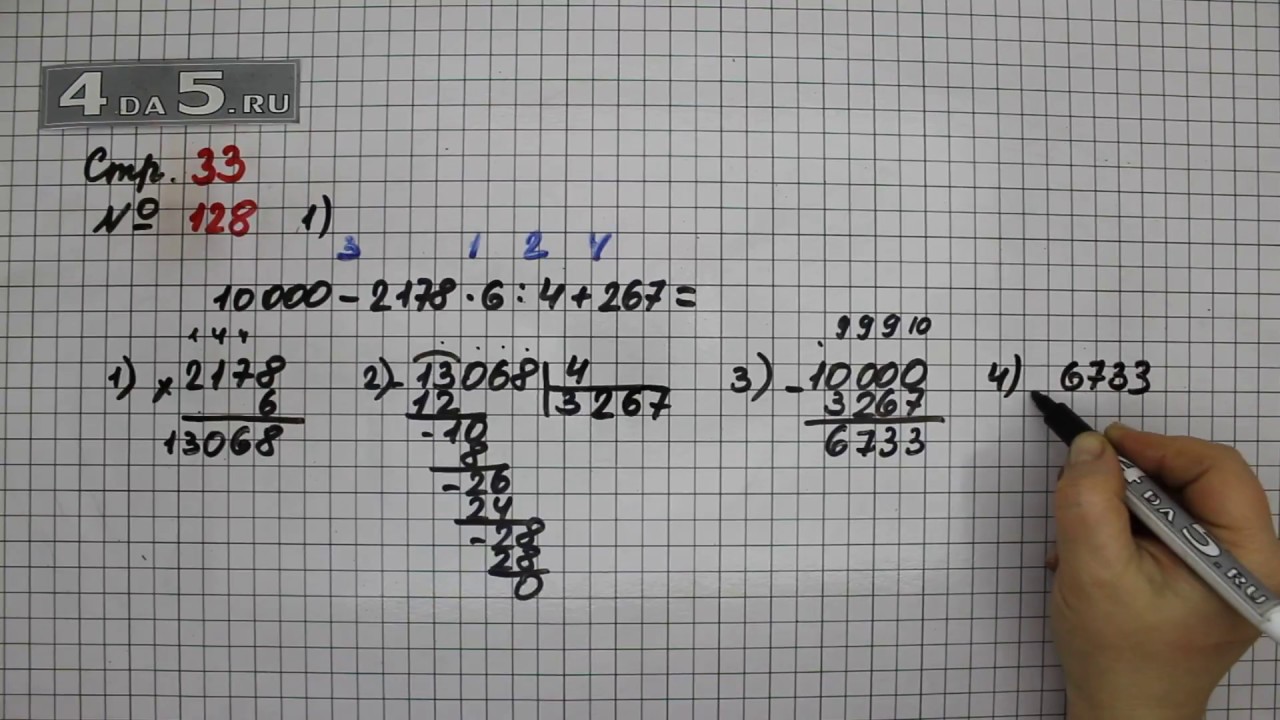 4 DA 5.RU
Стр. 33
№ 128 1)
3 1 2 4
10 000 - 2 178 · 6 : 4 + 267 =
1) 1 4 4
× 2178
6
13068
2) - 13068 | 4
12 3267
- 10
8
- 26
24
- 28
28
0
3) 9 9 9 10
- 10000
3267
6733
4) 6733
4 DA 5.RU